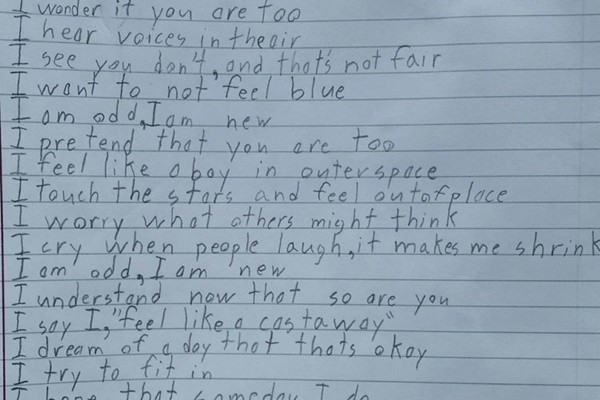 I wonder if you are too
I hear voices in the air
I see you don't, and that's not fair
I want to not feel blue
I am odd, I am new
I pretend that you are too
I feel like a boy in outerspace
I touch the stars and feel out of place
I worry what others might think
I cry when people laugh, it makes me shrink
I am odd, I am new
I understand now that so are you
I say I, "feel like a castaway"
I dream of a day that thats okay
I try to fit in
I hope that someday I do